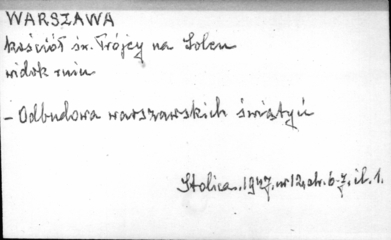 WARSZAWA
kościół św. Trójcy na Solcu
widok ruin
- Odbudowa warszawskich świątyń
Stolica., 1947. nr 12, str. 6-7, il. 1.